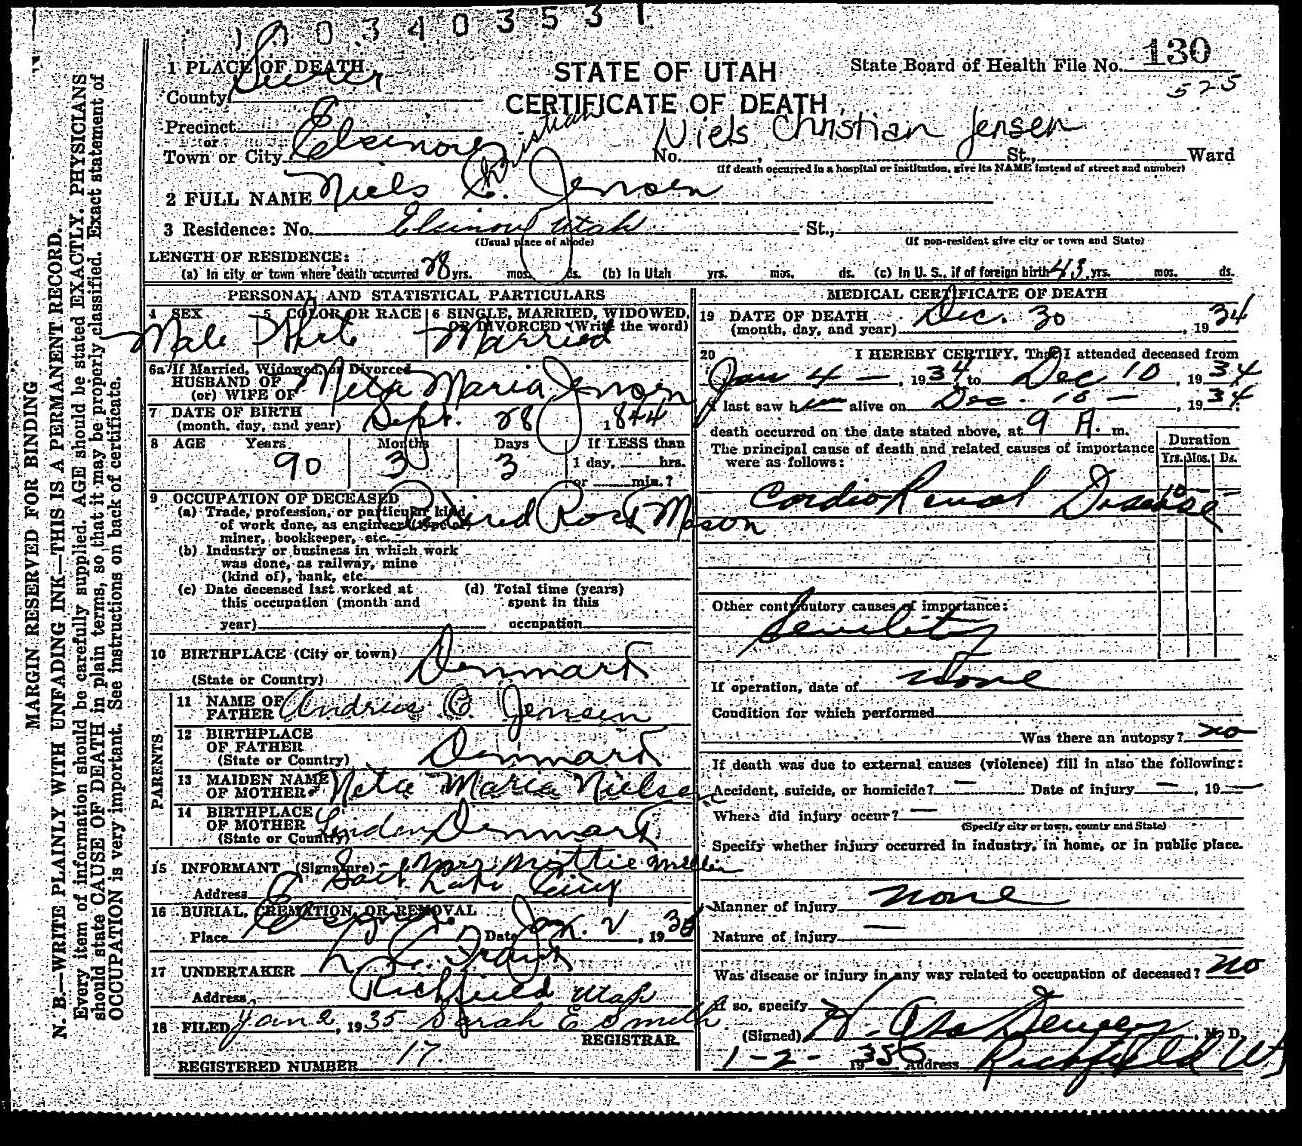 1 0 0 3 4 0 3 5 3 1
1 PLACE OF DEATH
STATE OF UTAH
CERTIFICATE OF DEATH
State Board of Health File No. 130
525
County Sevier
Precinct
or
Town or City Elsinore
Niels Christian Jensen
No. , St., Ward
(If death occurred in a hospital or institution, give its NAME instead of street and number)
2 FULL NAME Niels C. Jensen
Christian
3 Residence: No. Elsinore Utah St.,
(Usual place of abode) (If non-resident give city or town and State)
LENGTH OF RESIDENCE:
(a) In city or town where death occurred 28 yrs. mos. ds. (b) In Utah yrs. mos. ds. (c) In U. S., if of foreign birth 43 yrs. mos. ds.
PERSONAL AND STATISTICAL PARTICULARS
4 SEX 5 COLOR OR RACE 6 SINGLE, MARRIED, WIDOWED, OR DIVORCED (Write the word)
Male White Married
6a If Married, Widowed, or Divorced
HUSBAND OF
(or) WIFE OF Meta Maria Jensen
7 DATE OF BIRTH
(month, day, and year) Sept. 28 1844
8 AGE Years Months Days If LESS than
90 3 3 1 day, hrs.
or min.?
9 OCCUPATION OF DECEASED
(a) Trade, profession, or particular kind
of work done, as engineer (type of
miner, bookkeeper, etc. Retired Rock Mason
(b) Industry or business in which work
was done, as railway, mine
(kind of), bank, etc.
(c) Date deceased last worked at
this occupation (month and
year)
(d) Total time (years)
spent in this
occupation
10 BIRTHPLACE (City or town)
(State or Country) Denmark
PARENTS
11 NAME OF
FATHER Andrew C. Jensen
12 BIRTHPLACE
OF FATHER
(State or Country) Denmark
13 MAIDEN NAME
OF MOTHER Meta Maria Nielsen
14 BIRTHPLACE
OF MOTHER
(State or Country) Denmark
15 INFORMANT (Signature) Mrs Mattie Miller
Address Salt Lake City
16 BURIAL, CREMATION, OR REMOVAL
Place Elsinore Date Jan. 2, 1935
17 UNDERTAKER
Address Richfield Utah
18 FILED Jan 2, 1935 Sarah E Smith
REGISTRAR.
REGISTERED NUMBER 17
MEDICAL CERTIFICATE OF DEATH
19 DATE OF DEATH
(month, day, and year) Dec. 30, 1934
20 I HEREBY CERTIFY, That I attended deceased from
Jan 4 —, 1934 to Dec 10, 1934
I last saw him alive on Dec. 10 —, 1934
death occurred on the date stated above, at 9 A. m.
The principal cause of death and related causes of importance
were as follows:
Duration
Yrs. Mos. Ds.
Cardio Renal Disease 10
Other contributory causes of importance:
Senility
If operation, date of None
Condition for which performed
Was there an autopsy? no
If death was due to external causes (violence) fill in also the following:
Accident, suicide, or homicide? — Date of injury —, 19 —
Where did injury occur? —
(Specify city or town, county and State)
Specify whether injury occurred in industry, in home, or in public place.
none
Manner of injury
Nature of injury —
Was disease or injury in any way related to occupation of deceased? no
If so, specify
(Signed) M. D.
1-2- 1935 Address Richfield Ut
MARGIN RESERVED FOR BINDING
N. B.—WRITE PLAINLY WITH UNFADING INK—THIS IS A PERMANENT RECORD.
Every item of information should be carefully supplied. AGE should be stated EXACTLY. PHYSICIANS
should state CAUSE OF DEATH in plain terms, so that it may be properly classified. Exact statement of
OCCUPATION is very important. See instructions on back of certificate.